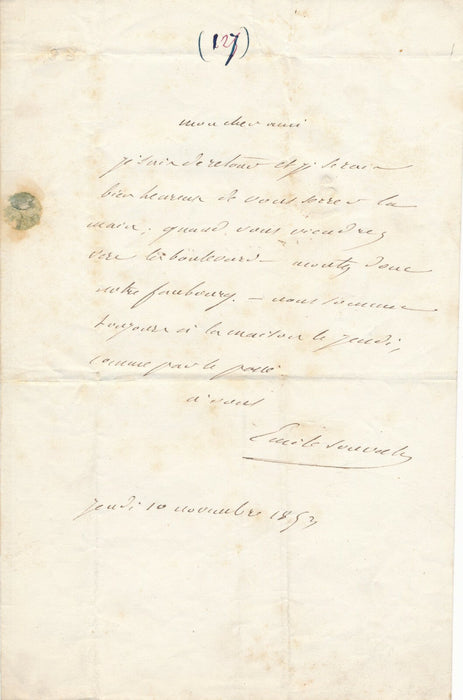 (127)
mon cher ami
je suis de retour et je serais
bien heureux de vous serrer la
main; quand vous viendrez
vers le boulevard montez donc
notre faubourg. - nous sommes
toujours à la maison le jeudi,
comme par le passé
à vous
Emile Souvestre
jeudi 10 novembre 1853